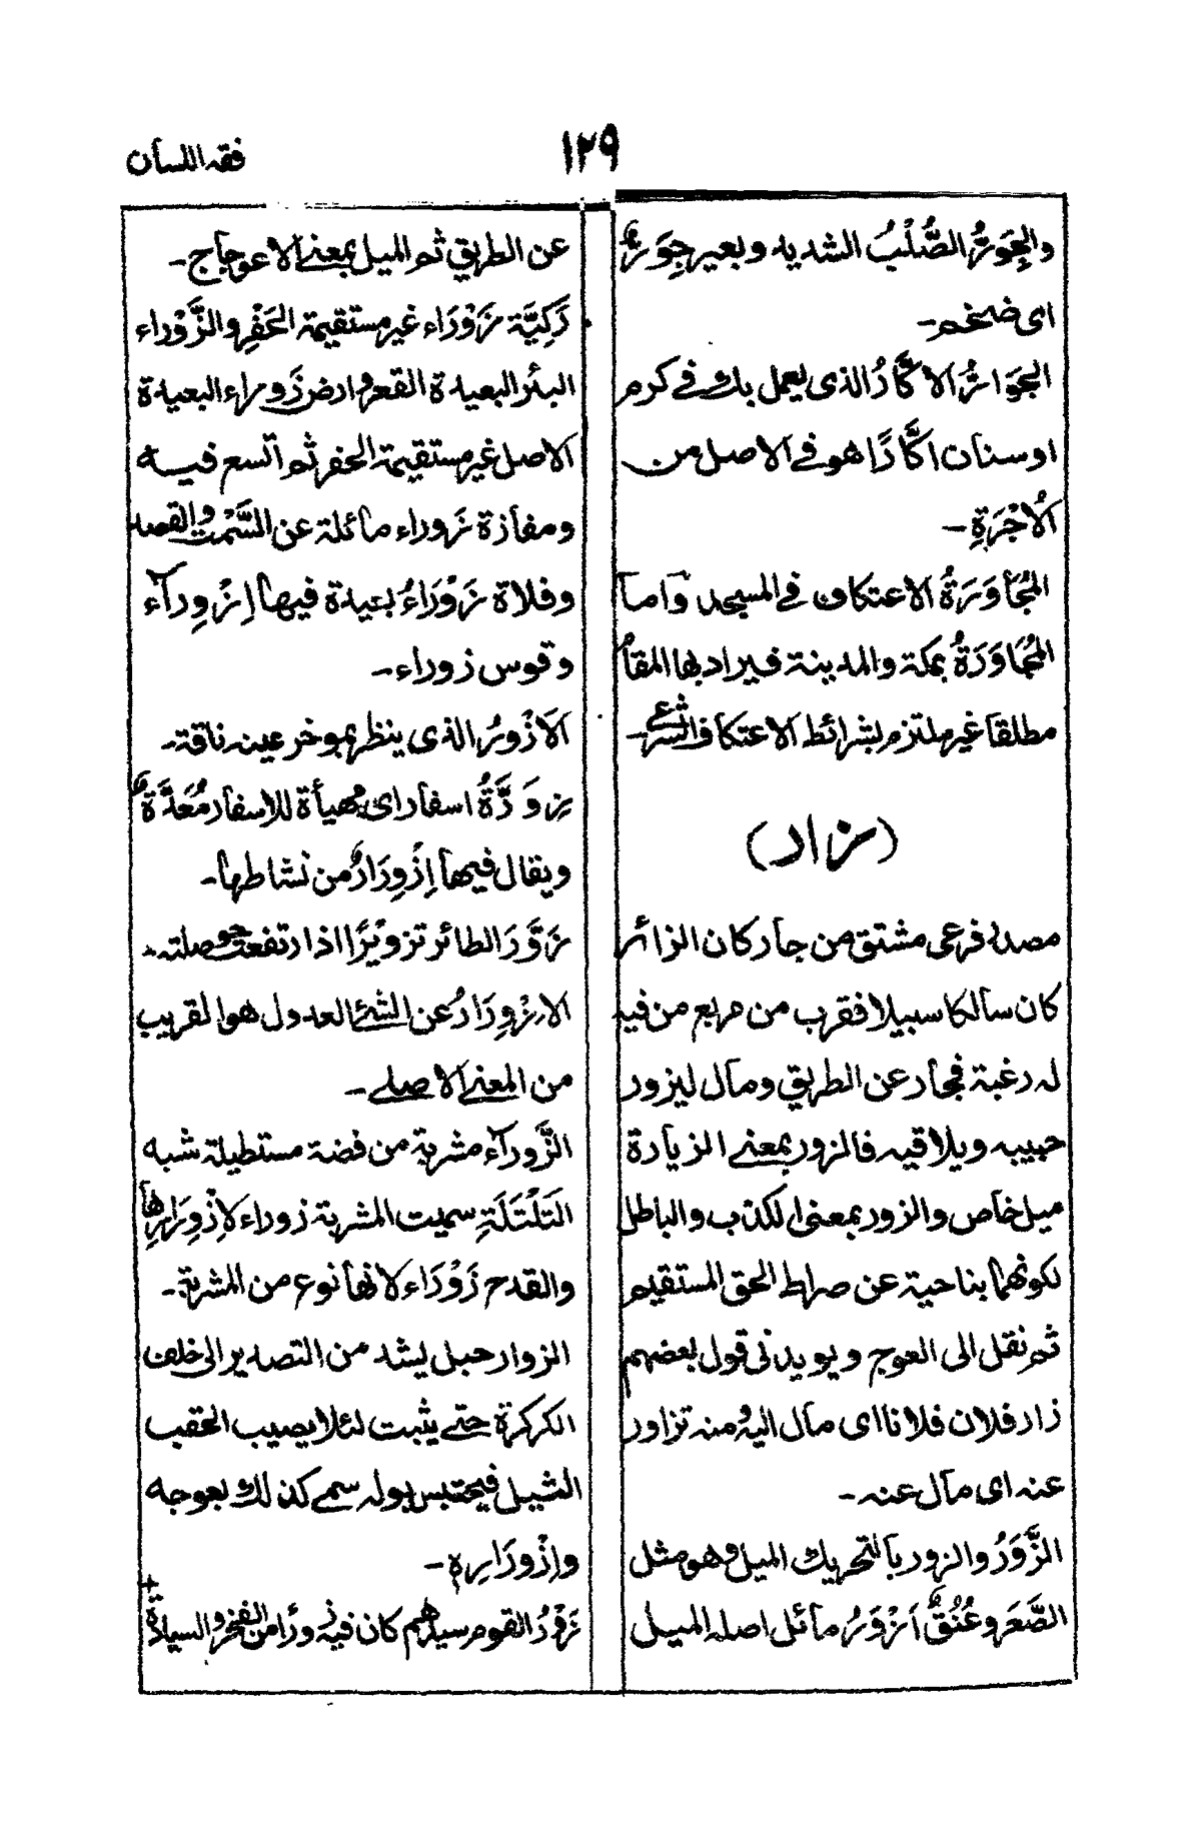 فقه اللسان
١٢٩
والجِوَرُّ الصُّلْبُ الشديد وبعير جِوَرٌّ
اى ضخم-
الجَوَّارُ الاكَّارُ الذى يعمل بك فى كرم
اوبستان اكَّارًا هو فى الاصل من
الأُجْرَةِ-
المُجَاوَرَةُ الاعتكاف فى المسجد واما
المُجَاوَرَةُ بمكة والمدينة فيراد بها المقام
مطلقا غير ملتزم بشرائط الاعتكاف الشرعى-
(زار)
مصدر فرعى مشتق من جار كان الزائر
كان سالكا سبيلا فقرب من مربع من فيه
له رغبة فجار عن الطريق ومال ليزور
حبيبه ويلاقيه فالزور بمعنى الزيارة
ميل خاص والزور بمعنى الكذب والباطل
لكونهما بناحية عن صراط الحق المستقيم
ثم نقل الى العوج ويويدنى قول بعضهم
زار فلان فلانا اى مال اليه ومنه تزاور
عنه اى مال عنه-
الزَّوَرُ والزور بالتحريك الميل وهو مثل
الصَّعَر وعُنُقٌ اَزْوَرُ مائل اصله الميل
عن الطريق ثم الميل بمعنى الاعوجاج-
رَكِيَّة زَوْرَاء غير مستقيمة الحَفْرِ والزَّوْراء
البئر البعيدة القعر وارض زَوراء البعيدة
الاصل غير مستقيمة الحفر ثم اتسع فيه
ومفازة زَوراء مائلة عن السَّمْت والقصد
وفلاة زَوْرَاءُ بعيدة فيها اِزْوِرآء
وقوس زوراء-
الاَزْوَرُ الذى ينظر بموخر عينه ناقة-
زِوَرَّةُ اسفار اى مهيأة للاسفار مُعَدَّةٌ
ويقال فيها اِزْوِرَارٌ من نشاطها-
زَوَّرَ الطائر تزويرًا اذا ارتفعت حوصلته-
الازْوِرَارُ عن الشئ العدول هو القريب
من المعنى الاصلى-
الزَّوراء مشربة من فضة مستطيلة شبه
التَلْتَلَةِ سميت المشربة زوراء لاِزْوِرَارِها
والقدح زَوْرَاء لانها نوع من المشربة-
الزوار حبل يشد من التصدير الى خلف
الكركرة حتى يثبت لئلا يصيب الحقب
الثيل فيحتبس بوله سمى كذلك بعوجه
وازْورَارِهِ-
زَوْرُ القوم سيدهم كان فيه زورًا من الفخر والسيادة